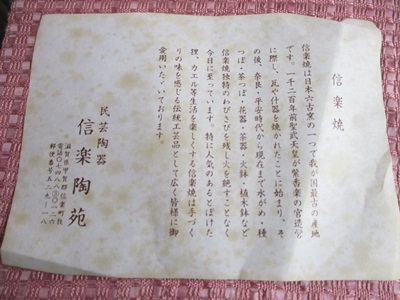 信楽焼
信楽焼は日本六古窯の一つで我が国最古の産地
です。一千二百年前聖武天皇が紫香楽の宮造営
に際し、瓦や什器を焼かれたことに始まり、そ
の後、奈良・平安時代から現在まで水がめ・種
つぼ・茶つぼ・花器・茶器・火鉢・植木鉢など
信楽焼独特のわびさびを残し火を絶すことなく
今日に至っています。特に人気のあるとぼけた
狸、カエル等生活を楽しくする信楽焼は手づく
りの味を感じる伝統工芸品として広く皆様に御
愛用いたゞいております。
民芸陶器
信楽陶苑
滋賀県甲賀郡信楽町
電話〇七四八八
郵便番号五二九―一八